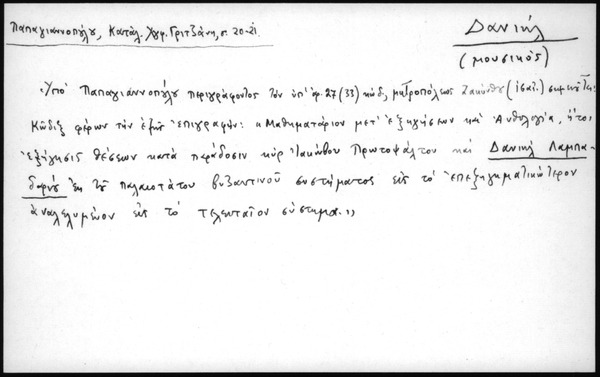 Παπαγιαννοπούλου, Κατάλ. Χφφ. Γριτζάνη, σ. 20-21.
Δανιήλ
(μουσικός)
Ὑπό Παπαγιαννοπούλου περιγράφοντος τόν ὑπ' ἀρ. 27 (33) κώδ. μητροπόλεως Ζακύνθου
Κῶδιξ φέρων τήν ἑξῆς ἐπιγραφήν: «Μαθηματάριον μετ' ἐξηγήσεων καί Ἀνθολογία, ἤτοι
ἐξήγησις θέσεων κατά παράδοσιν κύρ Ἰακώβου Πρωτοψάλτου καί Δανιήλ Λαμπα-
δαρίου ἐκ τοῦ παλαιοτάτου βυζαντινοῦ συστήματος εἰς τό ἐπεξηγηματικώτερον
ἀναλελυμένον εἰς τό τελευταῖον σύστημα.»